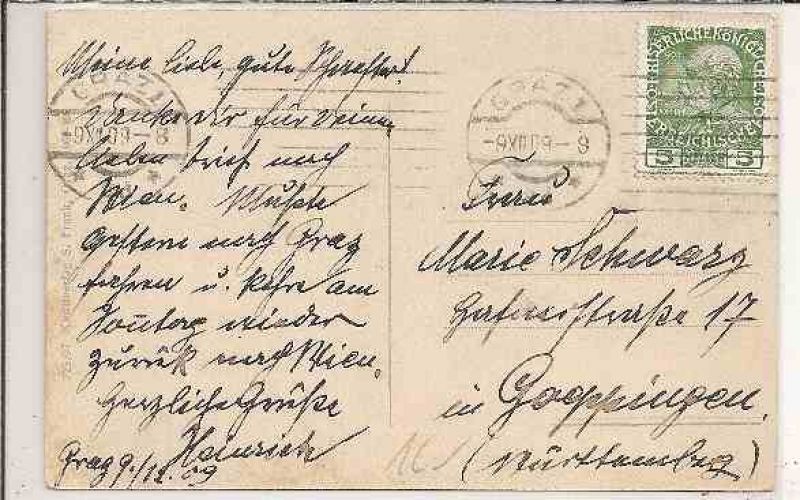 Meine liebe, gute Schwester!
Danke Dir für Deinen
lieben Brief nach
Wien. Mußte
gestern nach Graz
fahren u. kehre am
Sonntag wieder
zurück nach Wien.
Herzliche Grüße
Heinrich
Graz 9./12. 09
GRAZ 1
-9 XII 09- 8
GRAZ 1
-9 XII 09- 8
5 5
Frau
Marie Schwarz
straße 17
in Goeppingen
(Württemberg)